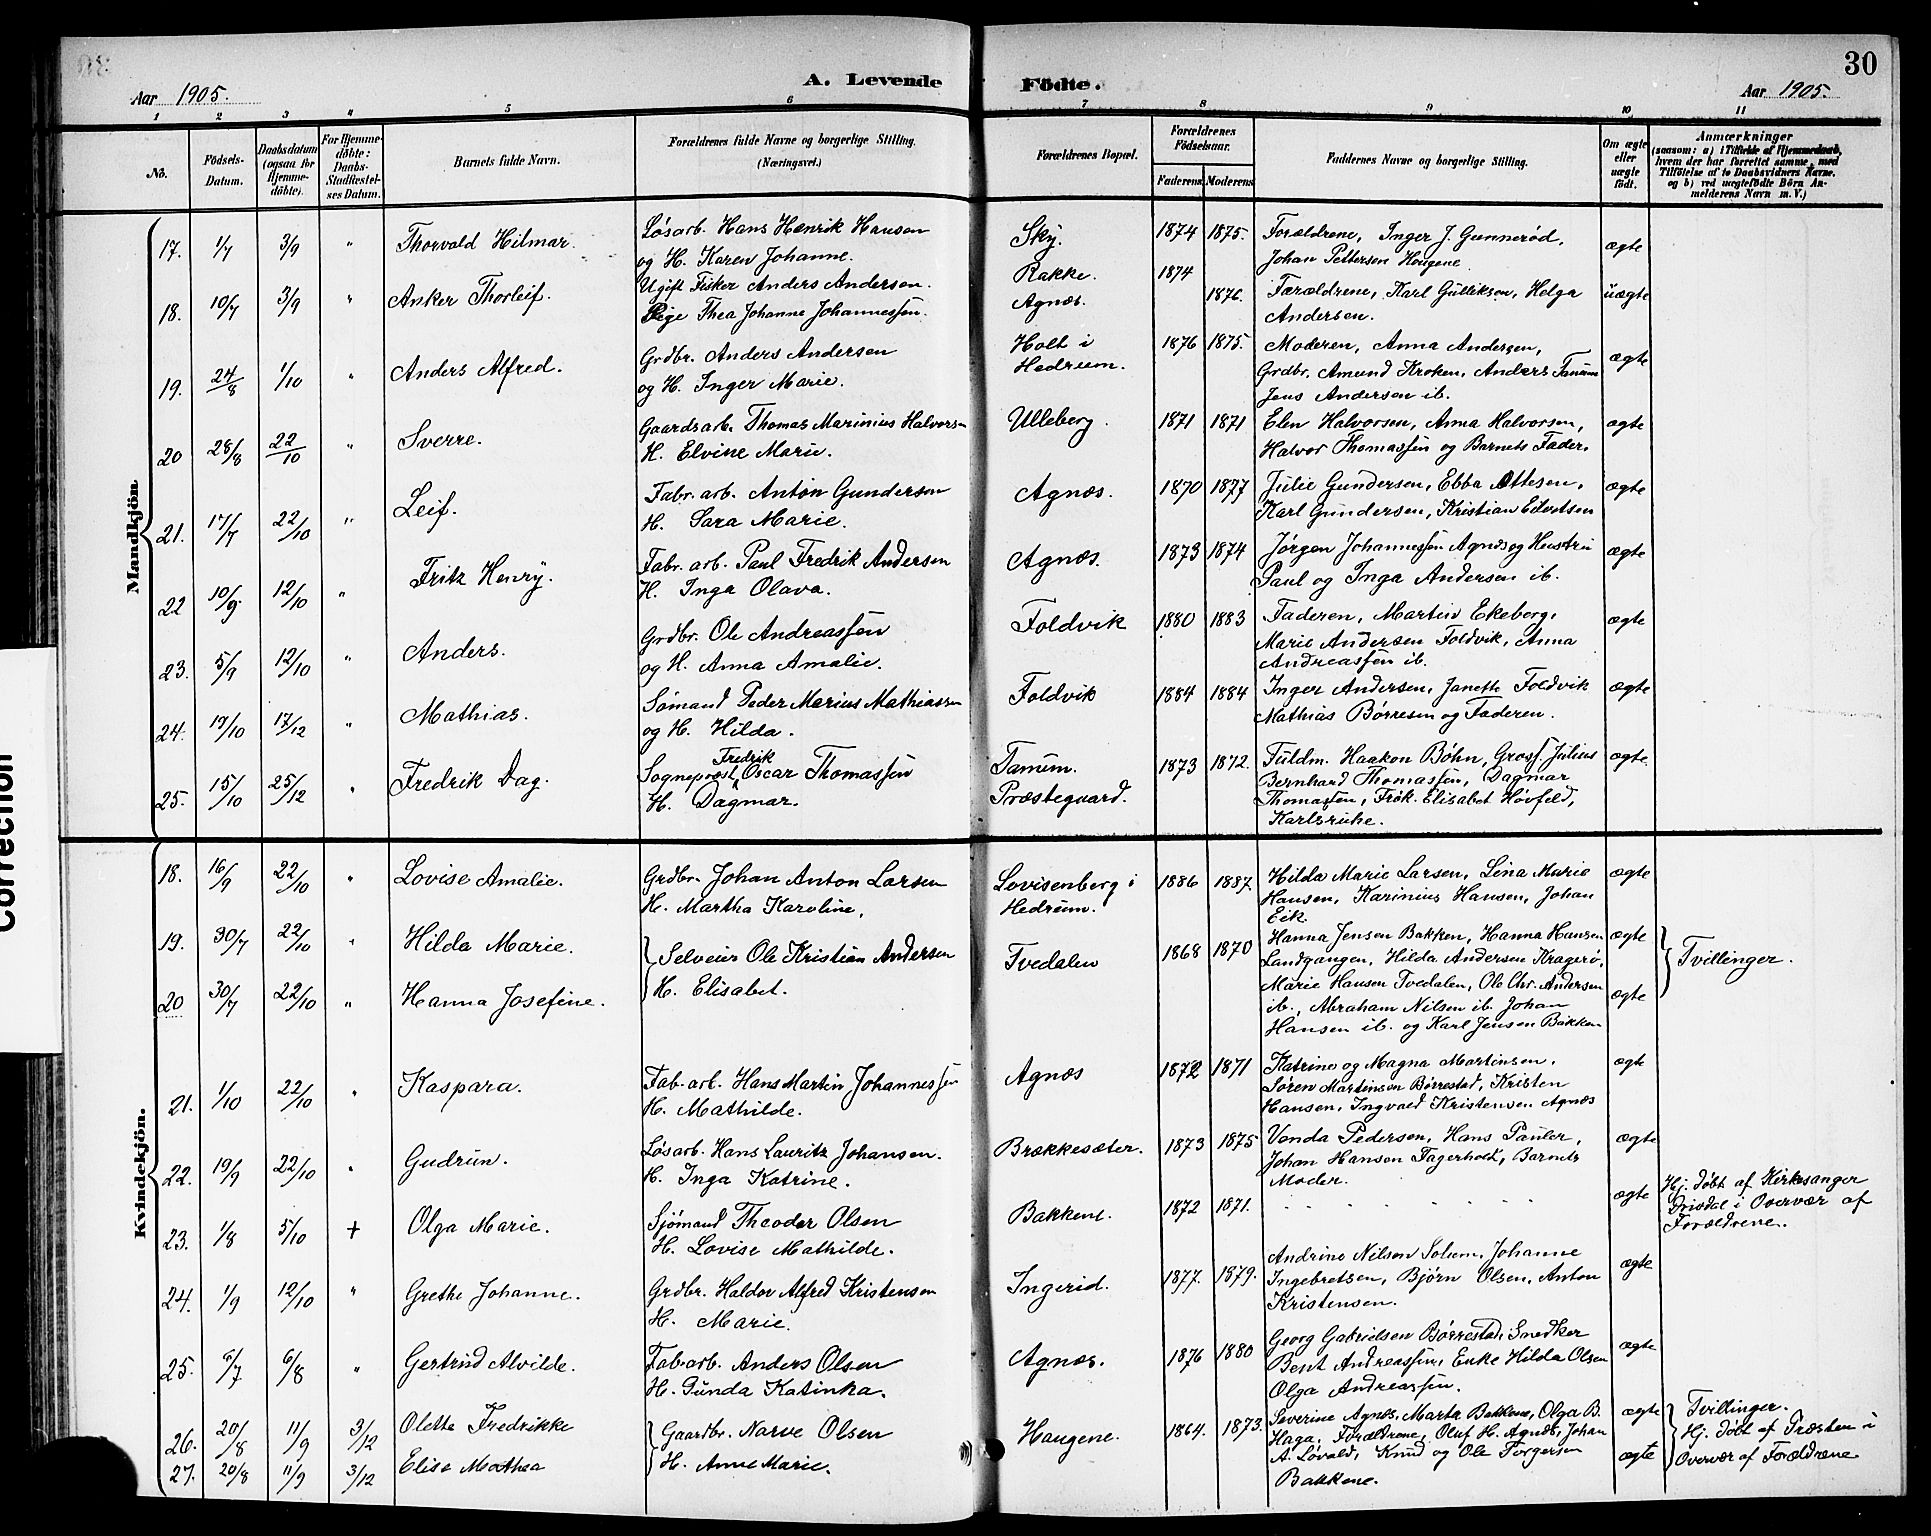 30
A. Levende Födte.
Aar 1905.
Aar 1905.
1 2 3 4 5 6 7 8 9 10 11
No.
Födsels-Datum.
Daabsdatum (ogsaa for Hjemmedöbte).
For Hjemmedöbte: Daabs-Stadfæstelses Datum.
Barnets fulde Navn.
Forældrenes fulde Navne og borgerlige Stilling. (Næringsvei.)
Forældrenes Bopæl.
Forældrenes Födselsaar.
Faderens Moderens
Faddernes Navne og borgerlige Stilling.
Om ægte eller uægte födt.
Anmærkninger
(saasom: a) i Tilfælde af Hjemmedaab,
hvem der har forrettet samme, med
Tilföielse af to Daabsvidners Navne,
og b) ved uægtefödte Börn An-
melderens Navn m. V.)
Mandkjön
17. 1/7 3/9 " Thorvald Hilmar. Løsarb. Hans Henrik Hansen Sky. 1874 1875. Forældrene, Inger J. Gunnerød, ægte
og H. Karen Johanne. Johan Pettersen Haugene.
18. 10/7 3/9 " Anker Thorleif. Ugift Fisker Anders Andersen. Rakke. 1874 Forældrene, Karl Gulliksen, Helga uægte
Pige Thea Johanne Johannessen. Agnæs. 1876. Andersen.
19. 24/8 1/10 " Anders Alfred. Grdbr. Anders Andersen Holt i 1876 1875. Moderen, Anna Andersen, ægte
og H. Inger Marie. Hedrum. Grdbr. Amund Kroken, Anders Tanum
Jens Andersen ib.
20 28/8 22/10 " Sverre. Gaardsarb. Thomas Marinius Halvorsen Ulleberg. 1871 1871 Elen Halvorsen, Anna Halvorsen, ægte
H. Elvine Marie. Halvor Thomassen og Barnets Fader.
21. 17/7 22/10 " Leif. Fabr. arb. Anton Gundersen Agnæs. 1870 1877 Julie Gundersen, Ebba Ottesen, ægte
H. Sara Marie. Karl Gundersen, Kristian Eilertsen
22 10/9. 12/10 " Fritz Henry. Fabr. arb. Paul Fredrik Andersen Agnæs. 1873 1874 Jørgen Johannessen Agnæs og Hustru ægte
H. Inga Olava. Paul og Inga Andersen ib.
23. 5/9 12/10 " Anders. Grdbr. Ole Andreassen Foldvik 1880 1883 Faderen, Martin Ekeberg, ægte
og H. Anna Amalie. Marie Andersen Foldvik, Anna
Andreassen ib.
24. 19/10 17/12 " Mathias. Sømand Peder Marius Mathiassen Foldvik 1884 1884 Inger Andersen, Janette Foldvik ægte
og H. Hilda. Mathias Børresen og Faderen.
25. 15/10 25/12 " Fredrik Dag. Sogneprest Fredrik Oscar Thomassen Tanum 1873 1872. Fuldm. Haakon Bøhn, Gross. Julius ægte.
H. Dagmar. Præstegaard. Bernhard Thomassen, Dagmar
Thomassen, Frøk. Elisabet Høvfeld,
Karlsruhe.
Kvindekjön.
18. 16/9 22/10 " Lovise Amalie. Grdbr. Johan Anton Larsen Lovisenberg i 1886 1887 Hilda Marie Larsen, Lina Marie ægte
H. Martha Karoline, Hedrum. Hansen, Karinius Hansen, Johan
Eik
19. 30/7 22/10 " Hilda Marie. Selveier Ole Kristian Andersen Tvedalen 1868 1870 Hanna Jensen Bakken, Hanna Hansen ægte Tvillinger.
Landgangen, Hilda Andersen Kragerø,
20 30/7 22/10 " Hanna Josefine. H. Elisabet. Marie Hansen Tvedalen, Ole Chr. Andersen ægte
ib., Abraham Nilsen ib. Johan
Hansen ib. og Karl Jensen Bakken
21. 1/10 22/10 " Kaspara. Fab. arb. Hans Martin Johannessen Agnæs 1872 1871 Katrine og Magna Martinsen, ægte
H. Mathilde. Søren Martinsen Børrestad, Kristen
Hansen, Ingvald Kristensen Agnæs
22. 19/9 22/10 " Gudrun. Løsarb. Hans Lauritz Johansen. Brækkesæter. 1873 1875 Vanda Pedersen, Hans Pauler, ægte
H. Inga Katrine. Johan Hansen Fagerholt, Barnets
Moder.
23. 1/8 5/10 + Olga Marie. Sjømand Theodor Olsen Bakkene. 1872 1871. ægte Hj. døbt af Kirkesanger
H. Lovise Mathilde. Drisdal i Overvær af
Forældrene.
24. 1/9 12/10 " Grethe Johanne. Grdbr. Haldor Alfred Kristensen Ingerid. 1877. 1879. Andrine Nilsen Solum, Johanne ægte
H. Marie. Ingebretsen, Bjørn Olsen, Anton
Kristensen.
25. 6/7 6/8 " Gertrud Alvilde. Fab. arb. Anders Olsen Agnæs. 1876 1880 Georg Gabrielsen Børrestad, Snedker ægte
H. Gunda Katinka. Bent Andreassen, Enke Hilda Olsen
Olga Andreassen.
26. 20/8 11/9 3/12 Olette Fredrikke Gaardbr. Narve Olsen Haugene. 1864. 1873. Severine Agnæs, Marta Bakkene, Olga B. ægte Tvillinger.
Haga, Forældrene, Oluf H. Agnæs, Johan Hj. døbt af Præsten i
27. 20/8 11/9 3/12 Elise Mathea H. Anne Marie. A. Løvald, Knud og Ole Torgersen ægte Overvær af Forældrene
Bakkene.
Correction